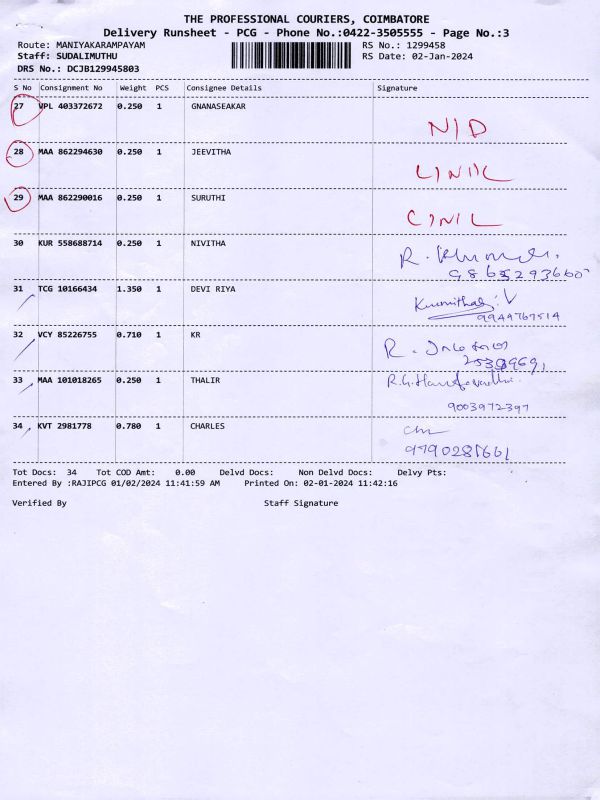 THE PROFESSIONAL COURIERS, COIMBATORE
Delivery Runsheet - PCG - Phone No.:0422-3505555 - Page No.:3
Route: MANIYAKARAMPAYAM RS No.: 1299458
Staff: SUDALIMUTHU RS Date: 02-Jan-2024
DRS No.: DCJB129945803
S No Consignment No Weight PCS Consignee Details Signature
27 VPL 403372672 0.250 1 GNANASEAKAR
N/D
28 MAA 862294630 0.250 1 JEEVITHA
29 MAA 862290016 0.250 1 SURUTHI
30 KUR 558688714 0.250 1 NIVITHA
R.
31 TCG 10166434 1.350 1 DEVI RIYA
9944767514
32 VCY 85226755 0.710 1 KR
R.
33 MAA 101018265 0.250 1 THALIR
9003972397
34 KVT 2981778 0.780 1 CHARLES
Tot Docs: 34 Tot COD Amt: 0.00 Delvd Docs: Non Delvd Docs: Delvy Pts:
Entered By :RAJIPCG 01/02/2024 11:41:59 AM Printed On: 02-01-2024 11:42:16
Verified By Staff Signature